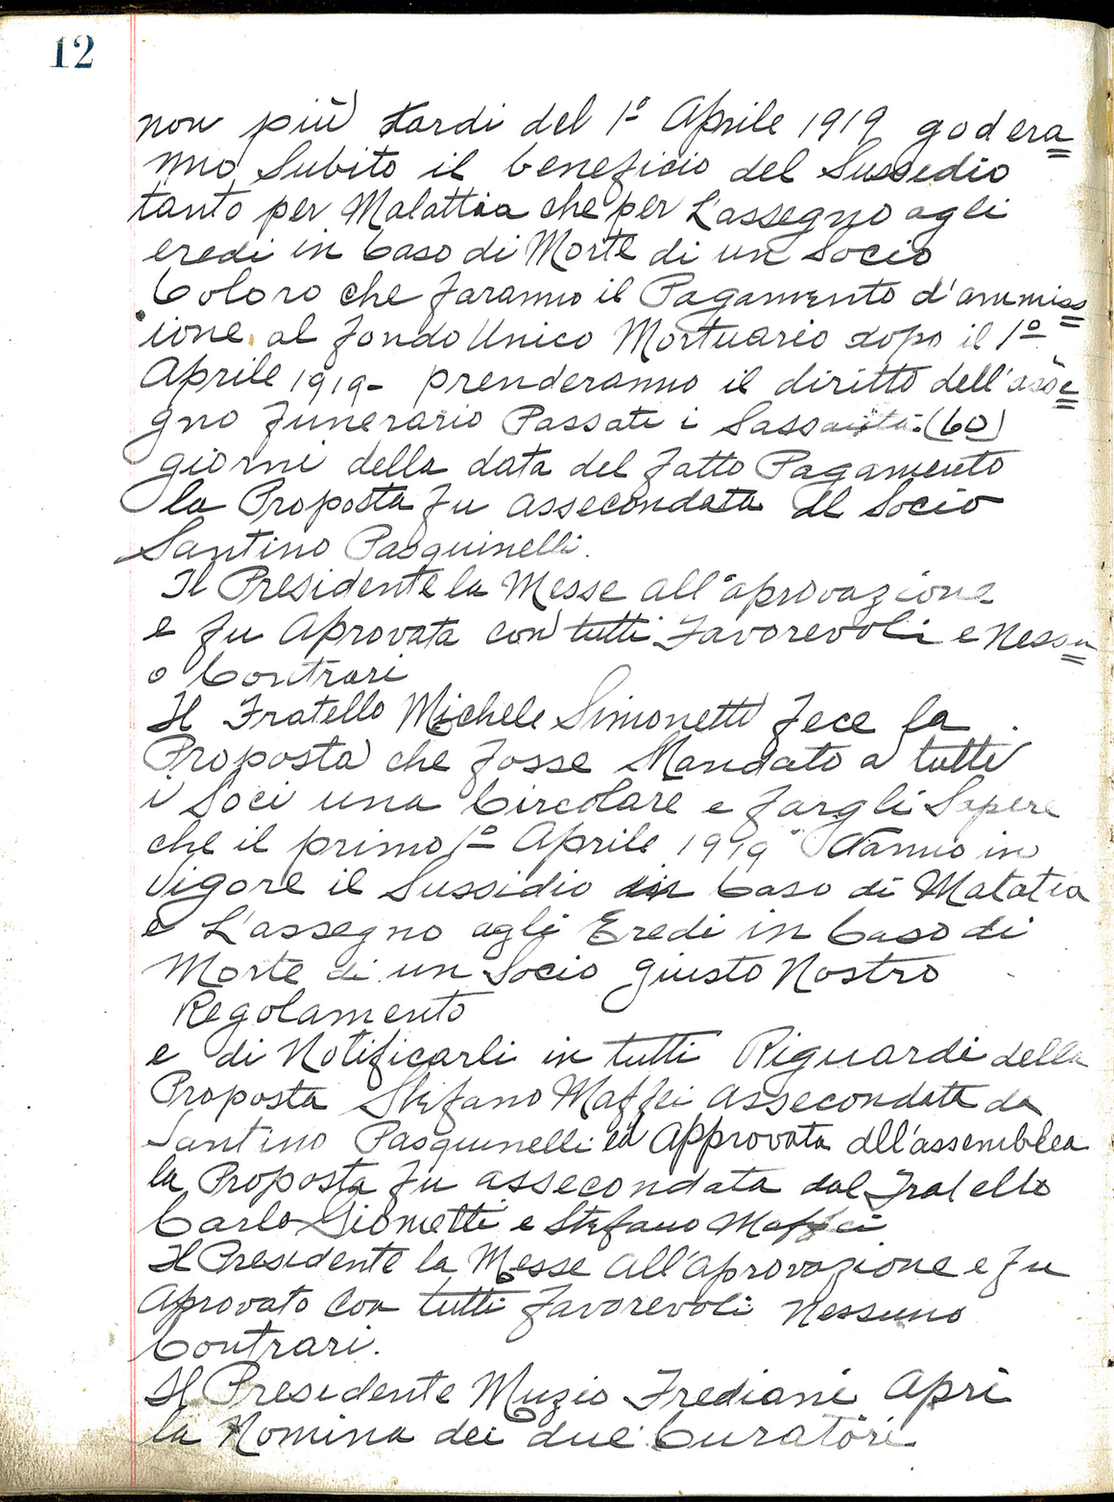 12
non più tardi del 1º Aprile 1919 godera=
nno Subito il beneficio del Sussedio
tanto per Malattia che per L'assegno agli
eredi in Caso di Morte di un Socio
Coloro che faranno il Pagamento d'ammiss=
ione al fondo Unico Mortuario dopo il 1º
Aprile 1919- prenderanno il diritto dell'asse=
gno funerario Passati i Sassanta (60)
giorni della data del fatto Pagamento
la Proposta fu assecondata dl Socio
Santino Pasquinelli.
Il Presidente la Messe all'aprovazione
e fu Aprovata con tutti Favorevoli e Nessu=
o Contrari
Il Fratello Michele Simonetti fece la
Proposta che fosse Mandato a tutti
i Soci una Circolare e fargli Sapere
che il primo 1º Aprile 1919 Vanno in
Vigore il Sussidio in Caso di Matatia
e L'assegno agli Eredi in Caso di
Morte di un Socio giusto Nostro
Regolamento
e di Notificarli in tutti Riguardi della
Proposta Stefano Maffei assecondata da
Santino Pasquinelli ed Approvata dll'assemblea
la Proposta fu assecondata dal Fratello
Carlo Giometti e Stefano Maffei
Il Presidente la Messe all'aprovazione e fu
Aprovato Con tutti favorevoli Nessuno
Contrari.
Il Presidente Muzio Frediani Aprì
la Nomina dei due Curatori.